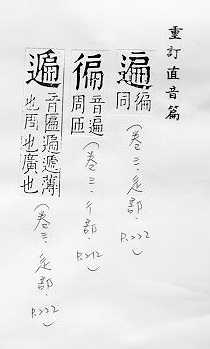 重訂直音篇
遍 徧同（卷三．辵部．P.222）
徧 音遍周匝（卷三．彳部．P.212）
音匾遍遞薄也周也廣也（卷三．辵部．P.222）